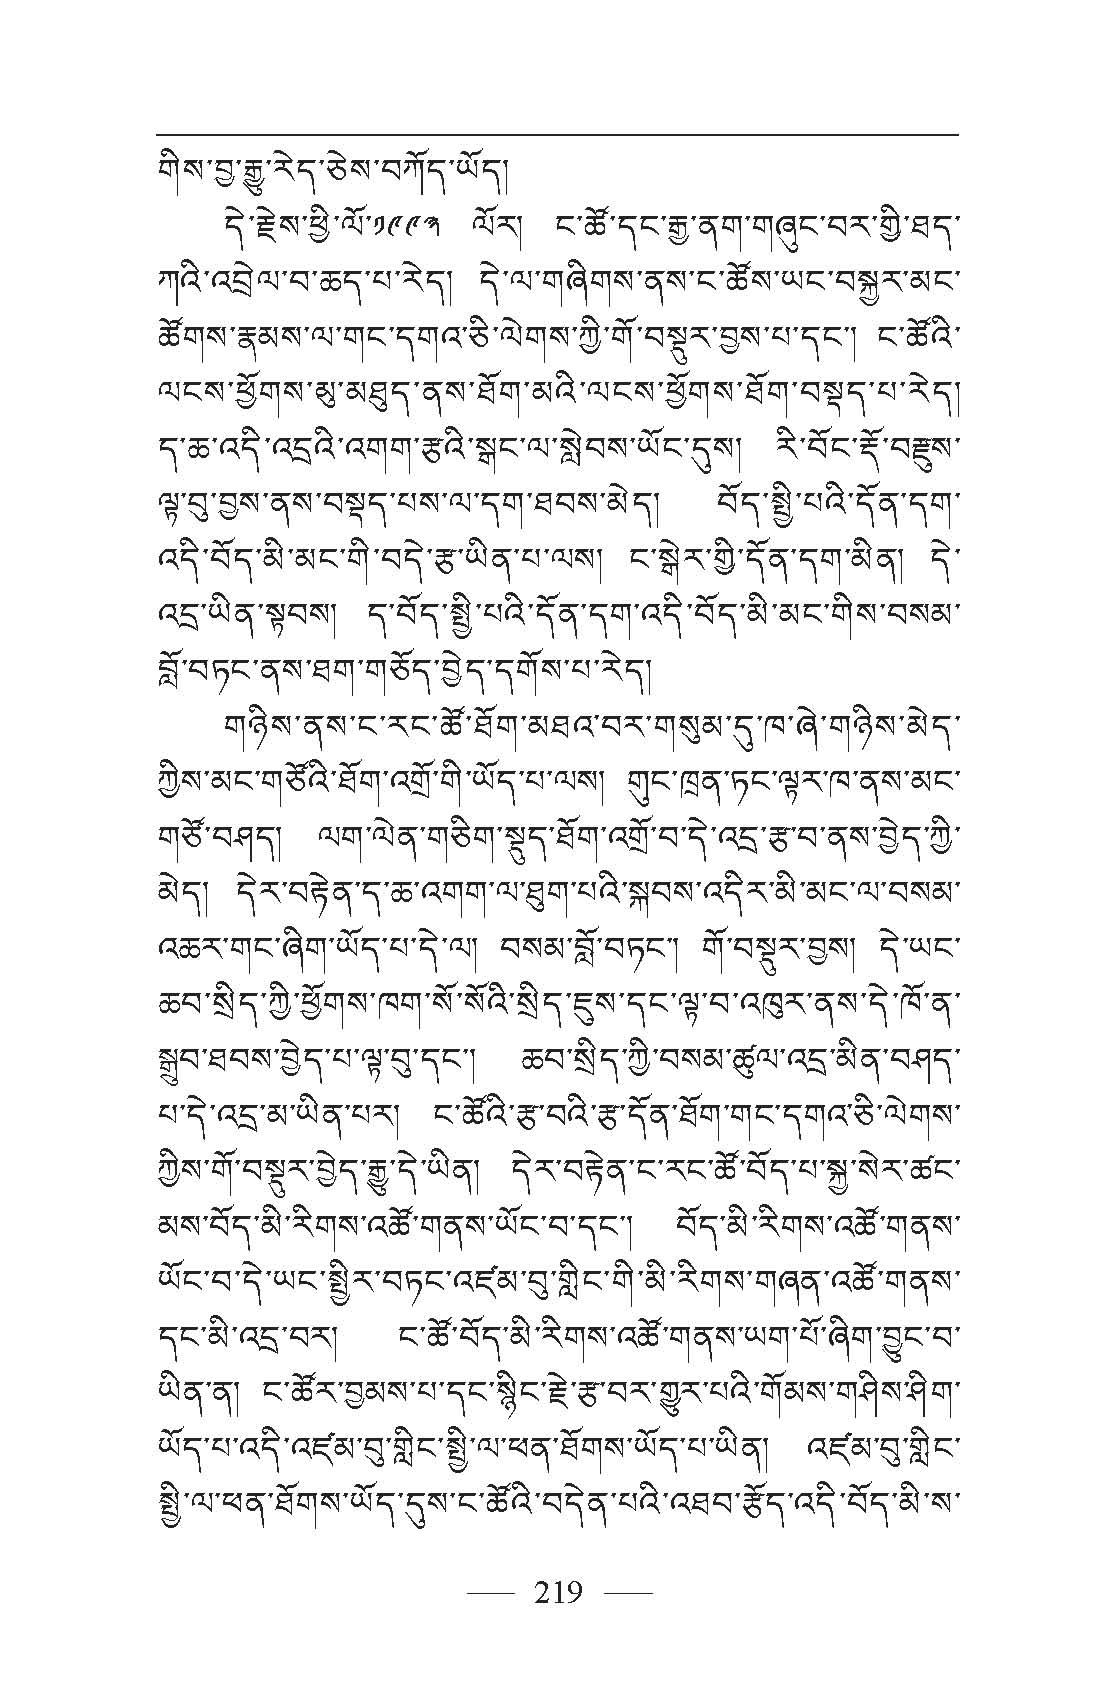 གིས་བྱ་རྒྱུ་རེད་ཅེས་བཀོད་ཡོད།
དེ་རྗེས་ཕྱི་ལོ་༡༩༩༣ ལོར། ང་ཚོ་དང་རྒྱ་ནག་གཞུང་བར་གྱི་ཐད་
ཀའི་འབྲེལ་བ་ཆད་པ་རེད། དེ་ལ་གཞིགས་ནས་ང་ཚོས་ཡང་བསྐྱར་མང་
ཚོགས་རྣམས་ལ་གང་དགའ་ཅི་ལེགས་ཀྱི་གོ་བསྡུར་བྱས་པ་དང་། ང་ཚོའི་
ལངས་ཕྱོགས་མུ་མཐུད་ནས་ཐོག་མའི་ལངས་ཕྱོགས་ཐོག་བསྡད་པ་རེད།
ད་ཆ་འདི་འདྲའི་འགག་རྩའི་སྒང་ལ་སླེབས་ཡོང་དུས། རི་བོང་རྡོ་བརྫུས་
ལྟ་བུ་བྱས་ནས་བསྡད་པས་ལ་དག་ཐབས་མེད། བོད་སྤྱི་པའི་དོན་དག་
འདི་བོད་མི་མང་གི་བདེ་རྩ་ཡིན་པ་ལས། ང་སྒེར་གྱི་དོན་དག་མིན། དེ་
འདྲ་ཡིན་སྟབས། ད་བོད་སྤྱི་པའི་དོན་དག་འདི་བོད་མི་མང་གིས་བསམ་
བློ་བཏང་ནས་ཐག་གཅོད་བྱེད་དགོས་པ་རེད།
གཉིས་ནས་ང་རང་ཚོ་ཐོག་མཐའ་བར་གསུམ་དུ་ཁ་ཞེ་གཉིས་མེད་
ཀྱིས་མང་གཙོའི་ཐོག་འགྲོ་གི་ཡོད་པ་ལས། གུང་ཁྲན་ཏང་ལྟར་ཁ་ནས་མང་
གཙོ་བཤད། ལག་ལེན་གཅིག་སྡུད་ཐོག་འགྲོ་བ་དེ་འདྲ་རྩ་བ་ནས་བྱེད་ཀྱི་
མེད། དེར་བརྟེན་ད་ཆ་འགག་ལ་ཐུག་པའི་སྐབས་འདིར་མི་མང་ལ་བསམ་
འཆར་གང་ཞིག་ཡོད་པ་དེ་ལ། བསམ་བློ་བཏང་། གོ་བསྡུར་བྱས། དེ་ཡང་
ཆབ་སྲིད་ཀྱི་ཕྱོགས་ཁག་སོ་སོའི་སྲིད་ཇུས་དང་ལྟ་བ་འཁུར་ནས་དེ་ཁོ་ན་
སྒྲུབ་ཐབས་བྱེད་པ་ལྟ་བུ་དང་། ཆབ་སྲིད་ཀྱི་བསམ་ཚུལ་འདྲ་མིན་བཤད་
པ་དེ་འདྲ་མ་ཡིན་པར། ང་ཚོའི་རྩ་བའི་རྩ་དོན་ཐོག་གང་དགའ་ཅི་ལེགས་
ཀྱིས་གོ་བསྡུར་བྱེད་རྒྱུ་དེ་ཡིན། དེར་བརྟེན་ང་རང་ཚོ་བོད་པ་སྐྱ་སེར་ཚང་
མས་བོད་མི་རིགས་འཚོ་གནས་ཡོང་བ་དང་། བོད་མི་རིགས་འཚོ་གནས་
ཡོང་བ་དེ་ཡང་སྤྱིར་བཏང་འཛམ་བུ་གླིང་གི་མི་རིགས་གཞན་འཚོ་གནས་
དང་མི་འདྲ་བར། ང་ཚོ་བོད་མི་རིགས་འཚོ་གནས་ཡག་པོ་ཞིག་བྱུང་བ་
ཡིན་ན། ང་ཚོར་བྱམས་པ་དང་སྙིང་རྗེ་རྩ་བར་གྱུར་པའི་གོམས་གཤིས་ཤིག་
ཡོད་པ་འདི་འཛམ་བུ་གླིང་སྤྱི་ལ་ཕན་ཐོགས་ཡོད་པ་ཡིན། འཛམ་བུ་གླིང་
སྤྱི་ལ་ཕན་ཐོགས་ཡོད་དུས་ང་ཚོའི་བདེན་པའི་འཐབ་རྩོད་འདི་བོད་མི་ས་
219